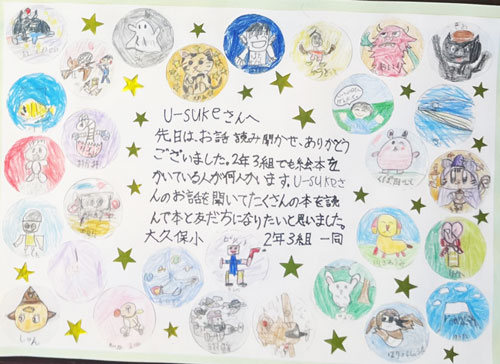 U-sukeさんへ
先日は、お話 読み聞かせ、ありがとう
ございました。2年3組でも絵本を
かいている人が何人かいます。U-sukeさ
んのお話を聞いてたくさんの本を読
んで本と友だちになりたいと思いました。
大久保小 2年3組 一同
しゅん